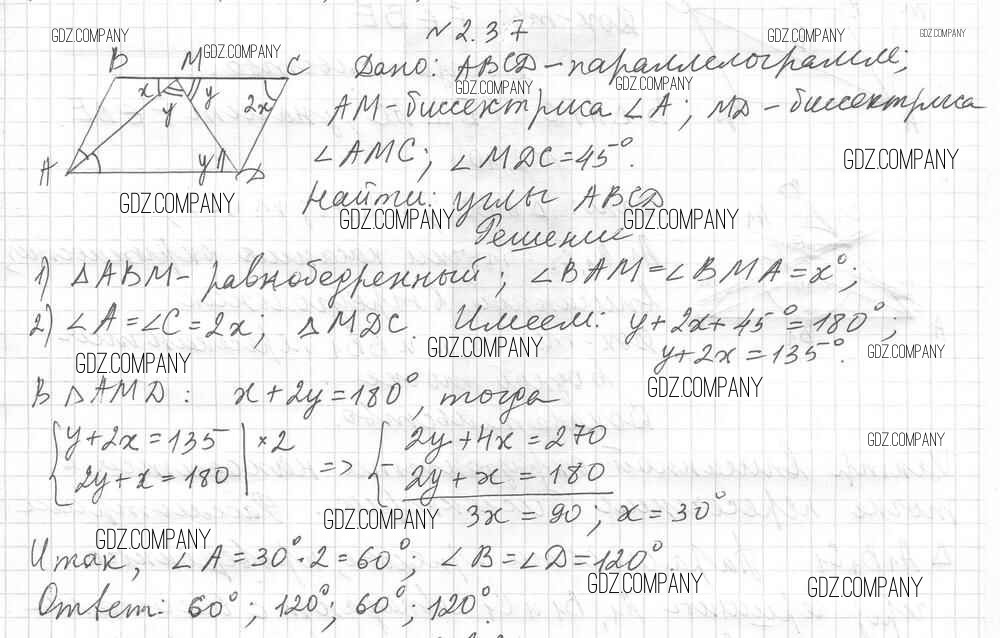 GDZ.COMPANY GDZ.COMPANY GDZ.COMPANY GDZ.COMPANY
№ 2.37
B M C
x y y 2x
A y D
Дано: ABCD – параллелограмм;
GDZ.COMPANY GDZ.COMPANY
AM – биссектриса ∠A; MD – биссектриса
∠AMC; ∠MDC = 45°.
GDZ.COMPANY
Найти: углы ABCD
GDZ.COMPANY GDZ.COMPANY GDZ.COMPANY
Решение
1) △ABM – равнобедренный; ∠BAM = ∠BMA = x°;
2) ∠A = ∠C = 2x; △MDC. Имеем: y + 2x + 45° = 180°;
y + 2x = 135°.
GDZ.COMPANY GDZ.COMPANY GDZ.COMPANY
GDZ.COMPANY
В △AMD: x + 2y = 180°, тогда
{ y + 2x = 135 | × 2 { 2y + 4x = 270
2y + x = 180 | => – 2y + x = 180
GDZ.COMPANY
3x = 90; x = 30°
GDZ.COMPANY GDZ.COMPANY
Итак, ∠A = 30° · 2 = 60°; ∠B = ∠D = 120°
GDZ.COMPANY GDZ.COMPANY
Ответ: 60°; 120°; 60°; 120°.